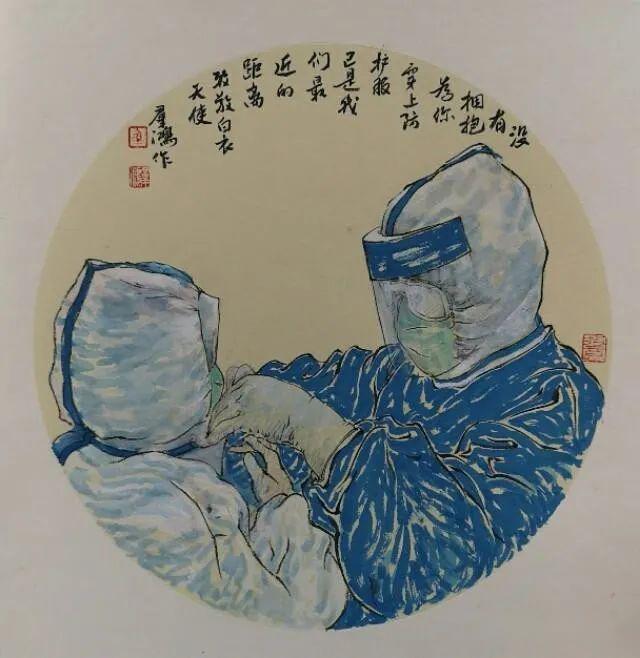 没
有
拥抱
為你
穿上防
护服
已是我
们最
近的
距离
致敬白衣
天使
羣鴻作